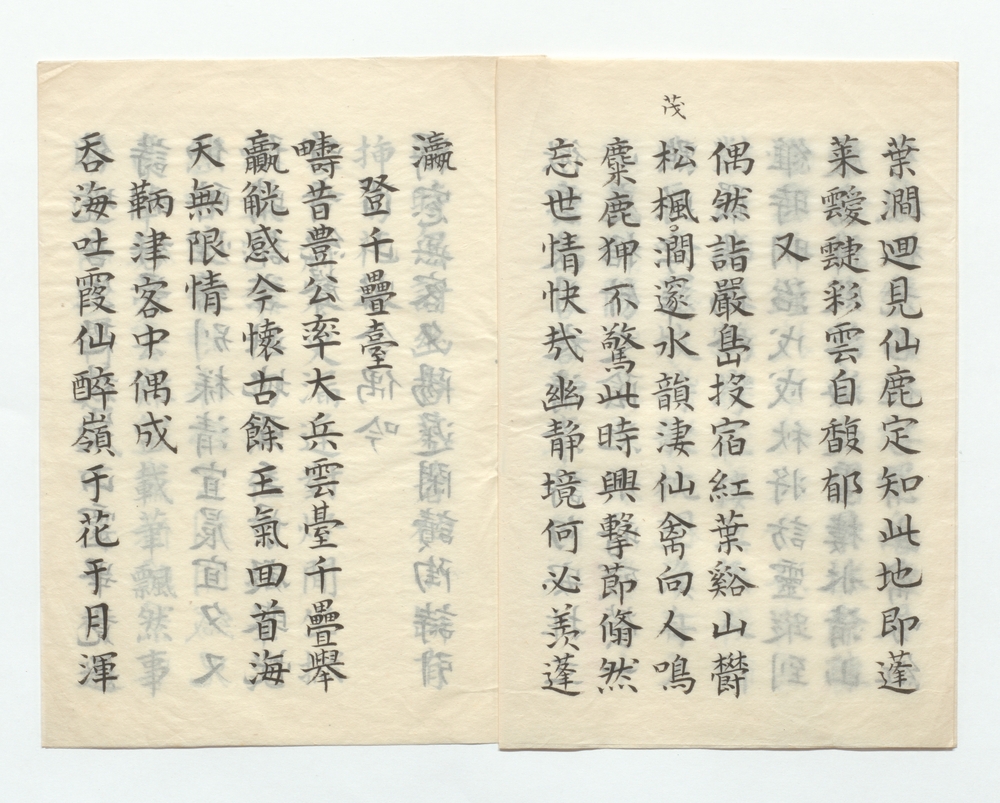 茂
葉澗廻見仙鹿定知此地即蓬
萊靉靆彩雲自馥郁
又
偶然詣嚴島投宿紅葉谿山欝
松楓澗邃水韻淒仙禽向人鳴
麋鹿狎不驚此時興擊節翛然
忘世情快哉幽静境何必羨蓬
瀛
登千疊臺
疇昔豊公率大兵雲臺千疊舉
贏觥感今懷古餘王氣回首海
天無限情
鞆津客中偶成
呑海吐霞仙醉嶺于花于月渾